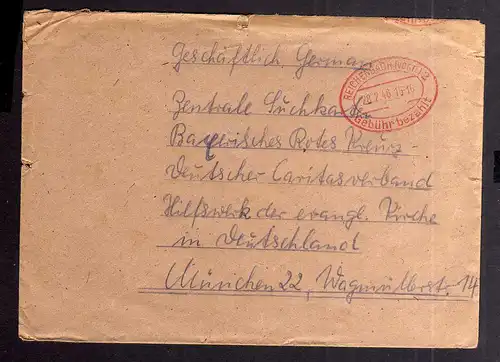 Geschäftlich, German
REICHENBACH (VOGTL) 2
28.2.46.15-16
Gebühr bezahlt
Zentrale Suchkartei
Bayerisches Rotes Kreuz -
Deutscher Caritasverband
Hilfswerk der evangl. Kirche
in Deutschland
München 22, Wagmüllerstr. 14